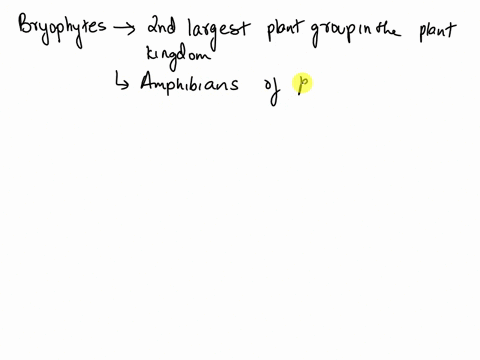 Bryophytes → 2nd largest plant group in the plant
kingdom
↳ Amphibians of p